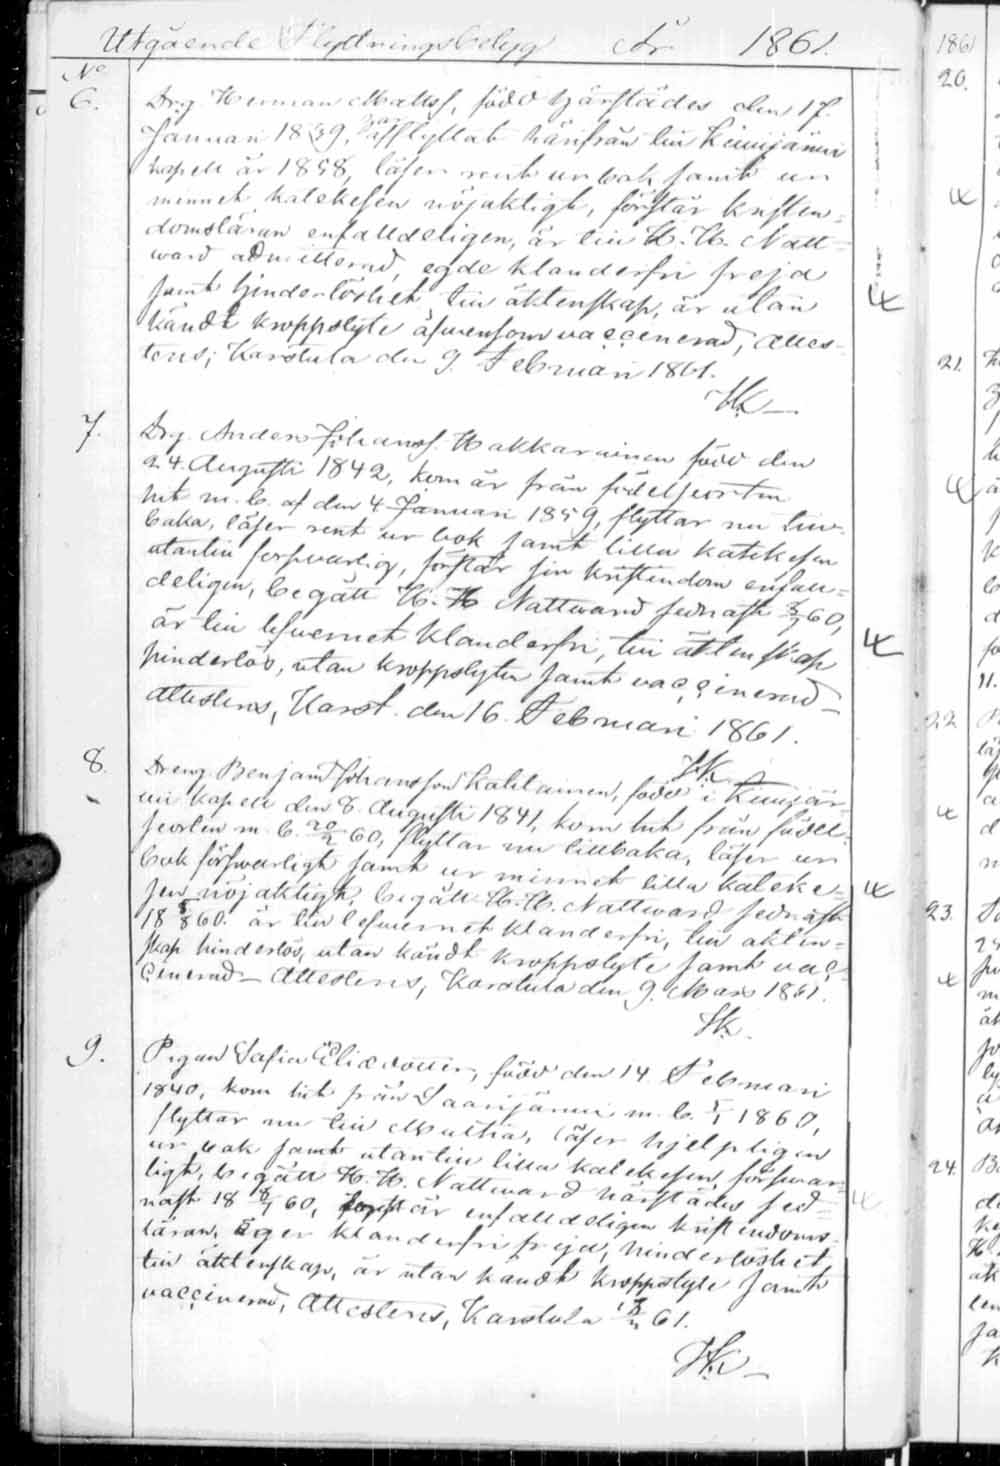 Utgående Flyttningsbetyg År 1861.
No
6. Drg. Herman Mattsf, född härstädes den 17.
Januari 1839, har afflyttat härifrån till Kiwijärwi
kapell år 1858, läser rent ur bok samt ur
minnet katekesen nöjaktigt, förstår kristen=
domsläran enfalldeligen, är till H. H. Natt=
ward admitterad, egde klanderfri frejd
samt hinderlöshet till äktenskap, är utan
kändt kroppslyte äfvensom vaccinerad, attes-
teras; Karstula den 9. Februari 1861.
HK
7. Drg. Anders Johansf. Hakkarainen född den
24. Augusti 1842, kom är från födelseorten
hit m. b. af den 4 Januari 1859, flyttar nu till-
baka, läser rent ur bok samt lilla katekesen
utantill försvarlig, förstår sin kristendom enfall=
deligen, begått H. H. Nattward sednast 60,
är till lefvernet klanderfri, till äktenskap
hinderlös, utan kroppslyten samt vaccinerad
attesteras, Karst. den 16. Februari 1861.
HK
8. Dreng Benjam Johansson Kahlainen, född i Kiwijär-
wi kapell den 8. Augusti 1841, kom hit från födel-
seorten m. b. 20/2 60, flyttar nu tillbaka, läser ur
bok försvarligt samt ur minnet lilla kateke=
sen nöjaktigt, begått H. H. Nattward sednast
18 60. är till lefvernet klanderfri, till äkten=
skap hinderlös, utan kändt kroppslyte samt vac-
cinerad – Attesteras, Karstula den 9. Mars 1861.
HK.
9. Pigan Safia Eliædotter, född den 14. Februari
1840, kom hit från Saarijärwi m. b. 1860,
flyttar nu till Multia, läser hjelpligen
ur bok samt utantill lilla katekesen, försvar=
ligt, begått H. H. Nattward härstädes sed=
nast 18 60, förstår enfalldeligen kristendoms-
läran, äger klanderfri frejd, hinderlöshet
till äktenskap, är utan kändt kroppslyte samt
vaccinerad, Attesteras, Karstula 61.
HK
186
20.
21.
22
23.
24.